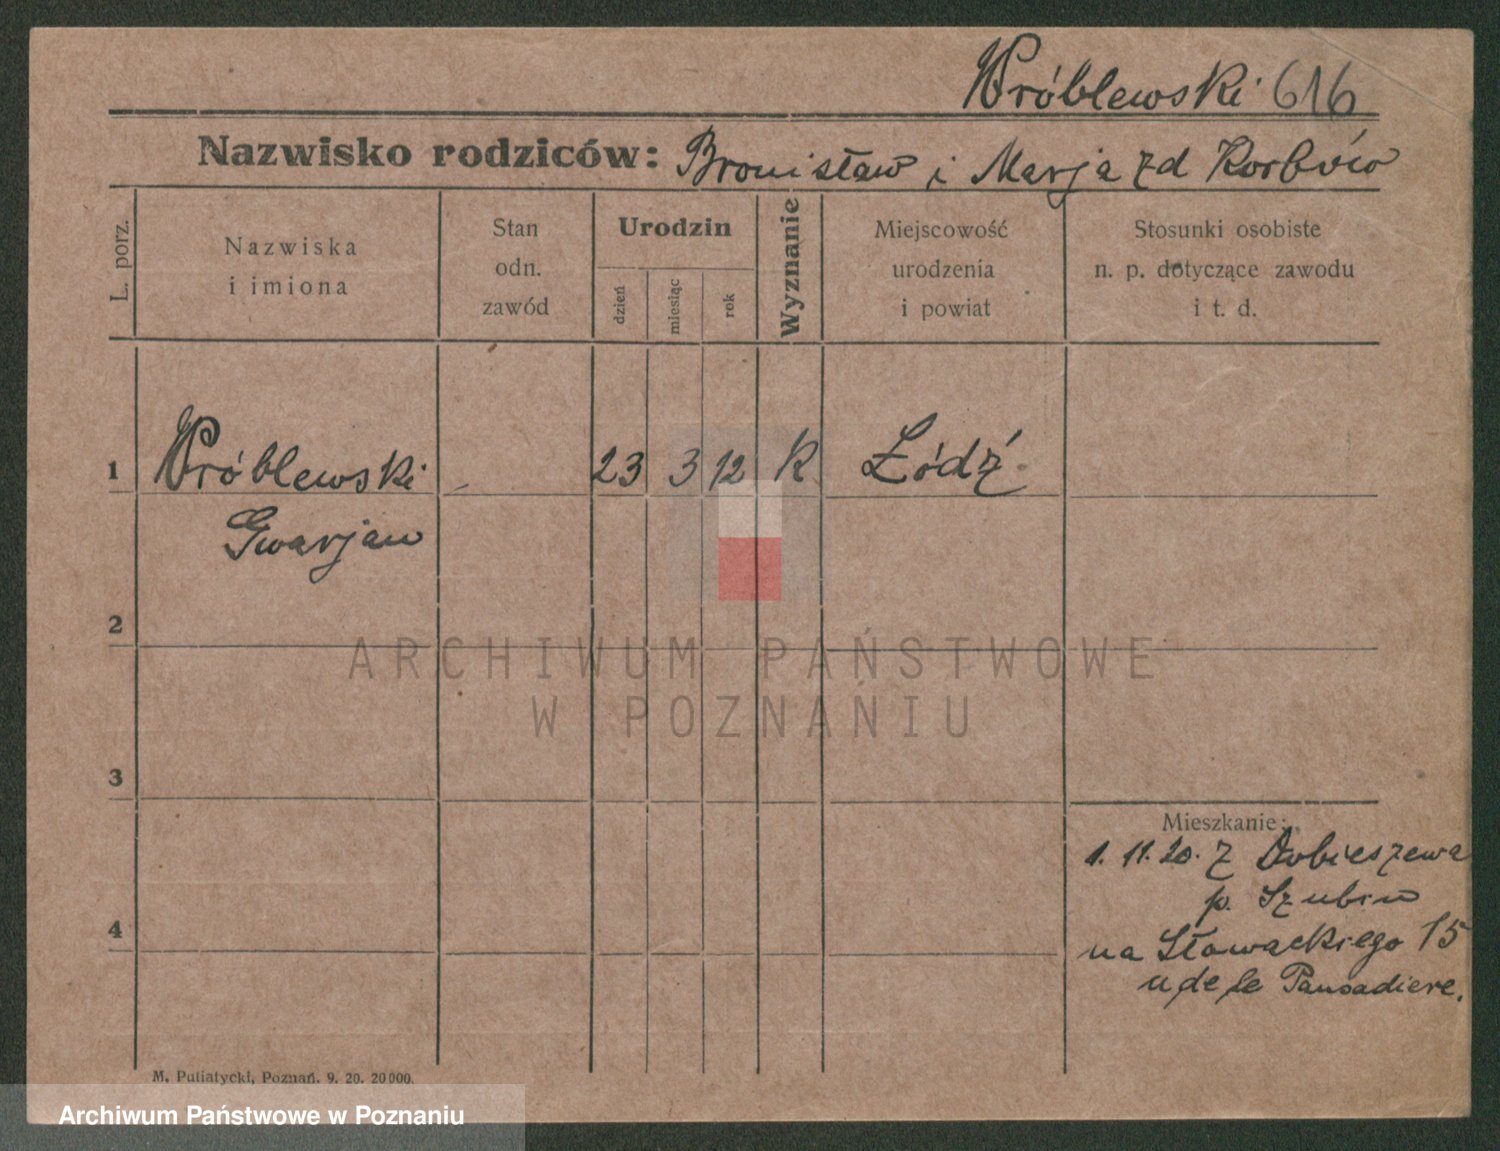 Wróblewski 616
Nazwisko rodziców: Bronisław i Marja zd Korbów
L. porz.
Nazwiska
i imiona
Stan
odn.
zawód
Urodzin
dzień
miesiąc
rok
Wyznanie
Miejscowość
urodzenia
i powiat
Stosunki osobiste
n. p. dotyczące zawodu
i t. d.
1 Wróblewski 23 3 12 K Łódź
Gwarjan
2
ARCHIWUM PAŃSTWOWE
W POZNANIU
3
Mieszkanie:
1. 11. 20. z Dobieszewa
p. Szubin
4
na Słowackiego 15
u de le Pansadiere.
M. Putiatycki, Poznań. 9. 20. 20000.
Archiwum Państwowe w Poznaniu